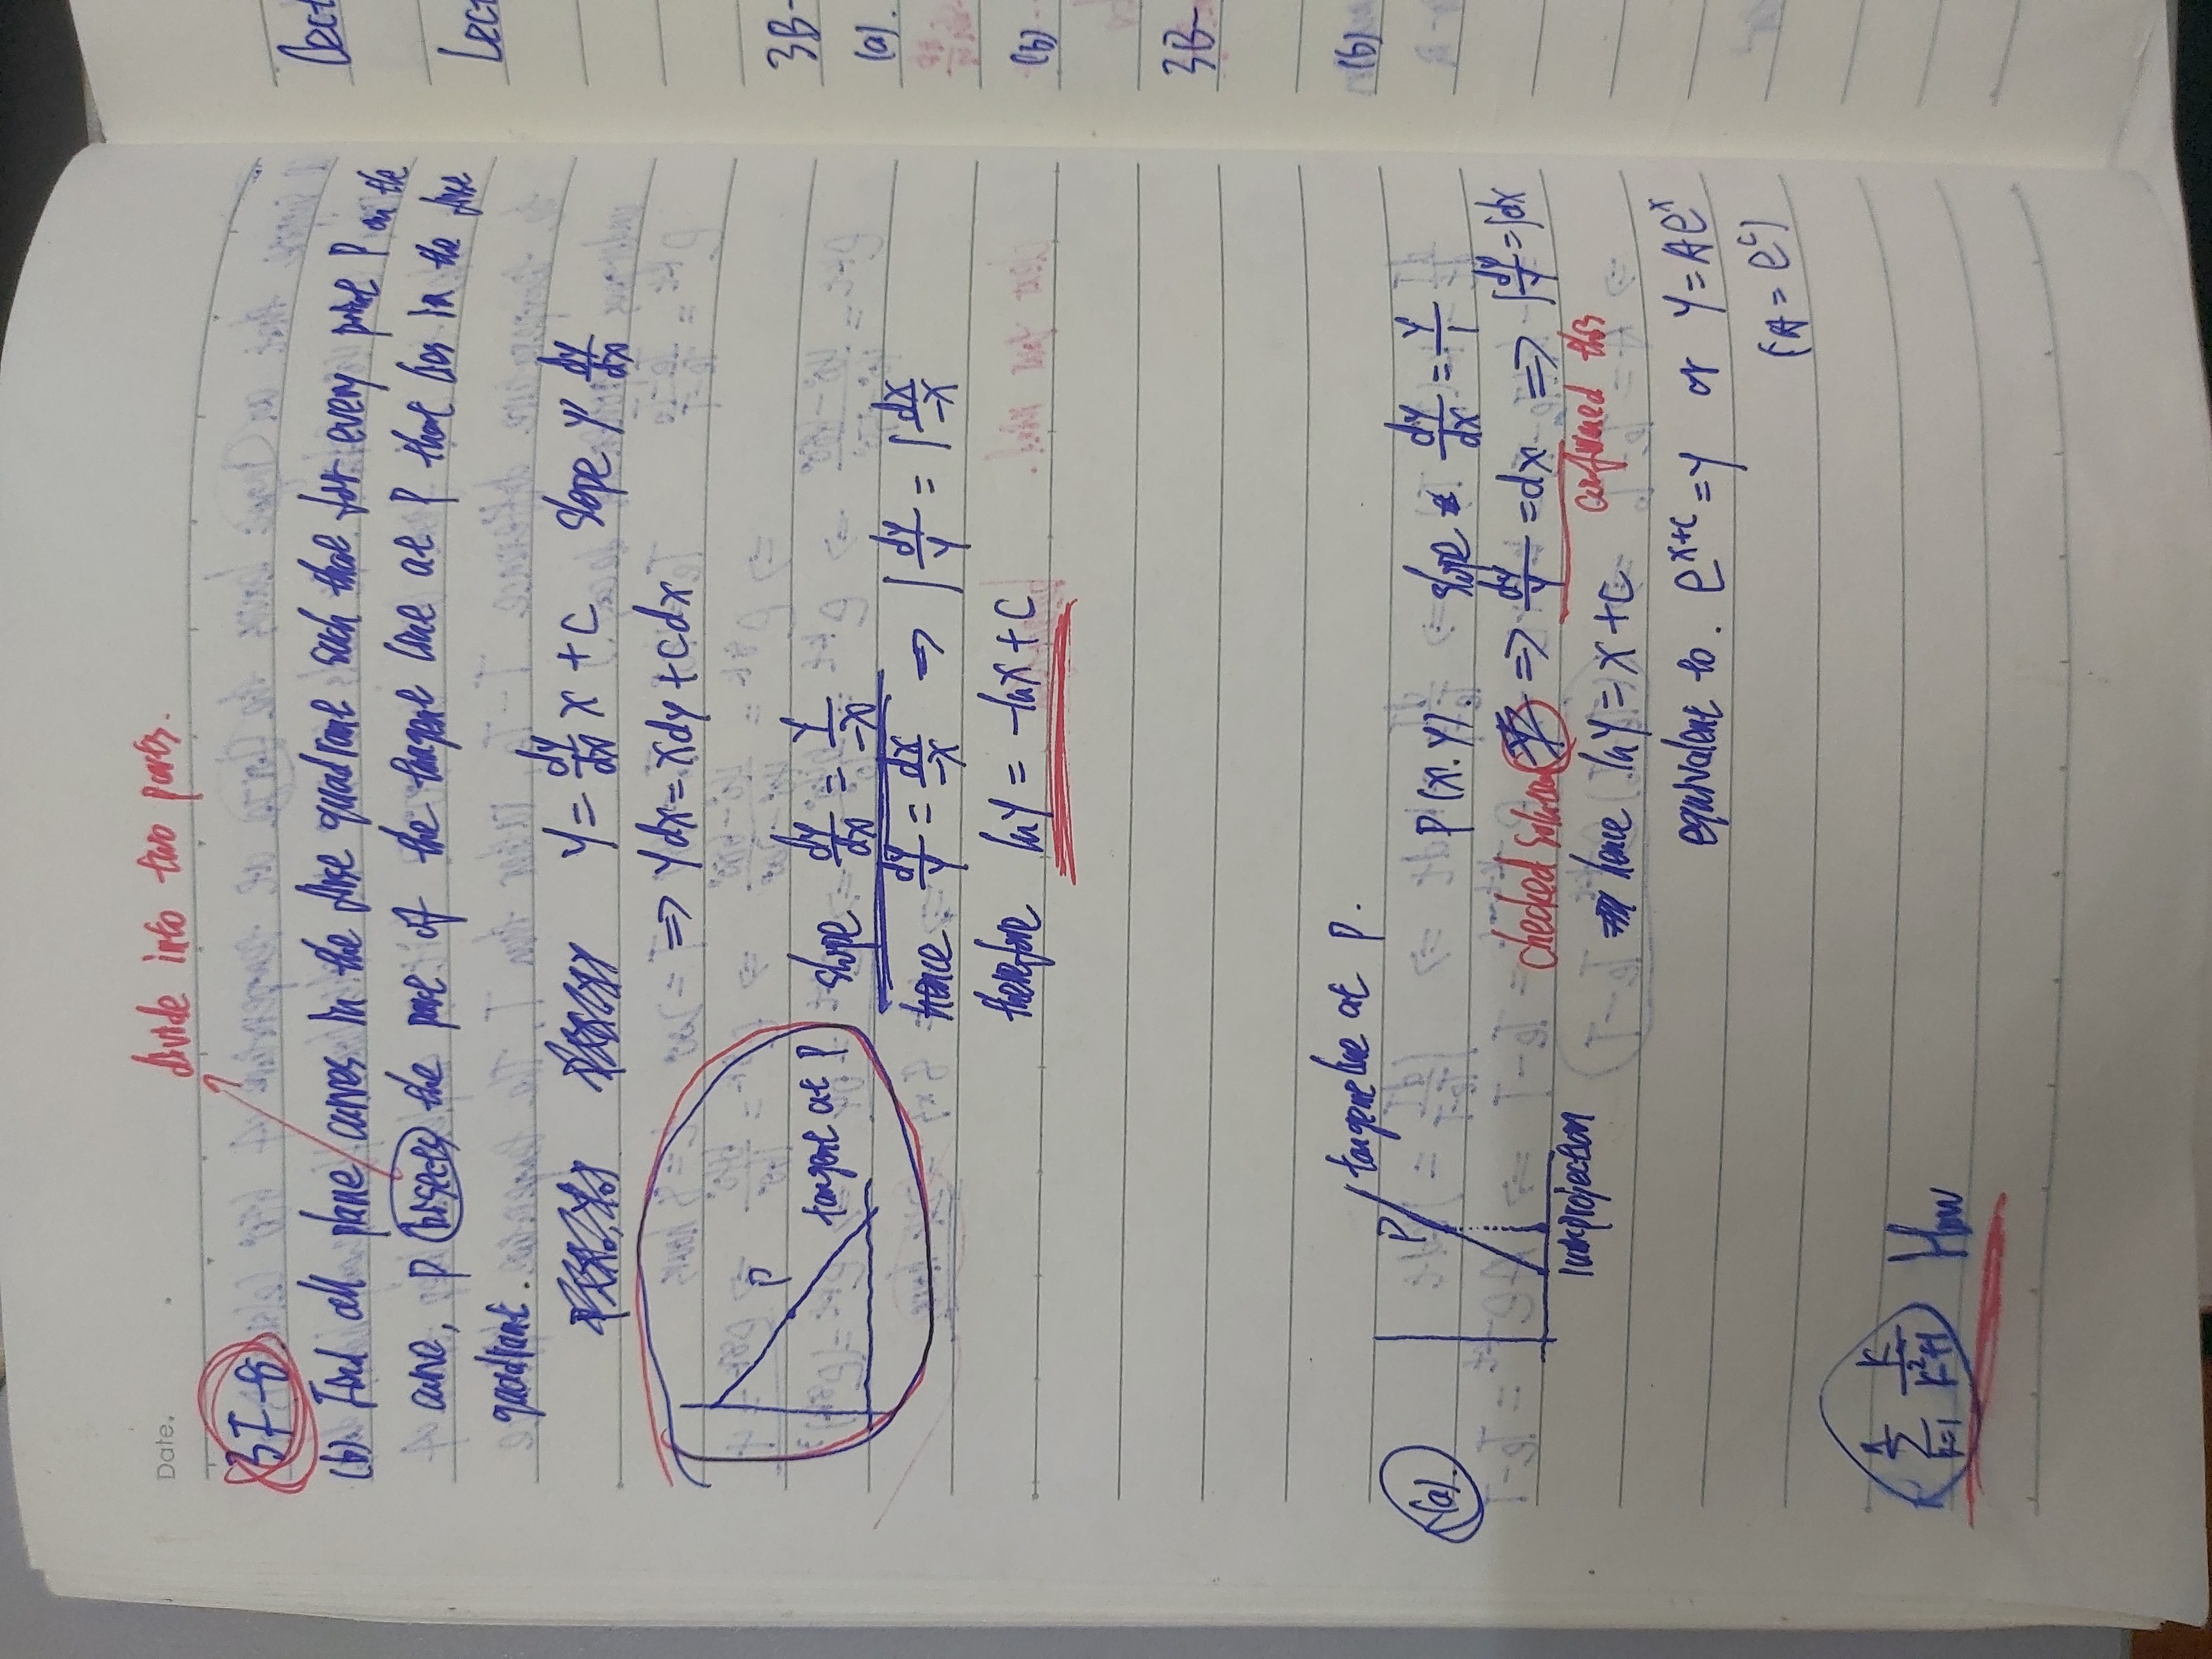 Date.
divide into two parts.
3F-8
(b). Find all plane curves in the first quadrant such that for every point P on the
curve, P bisects the part of the tangent line at P that lies in the first
quadrant.
y = dy/dx x + c slope y' dy/dx
⇒ ydx = xdy + cdx
P
tangent at P
slope dy/dx = y/-x
hence dy/y = dx/-x ⇒ ∫ dy/y = ∫ dx/-x
therefore lny = -lnx + c
tangent line at P.
(a).
P
P(x.y). slope dy/dx = y/1
checked solution ⇒ dy/y = dx ⇒ ∫dy/y = ∫dx
projection
confirmed this
hence lny = x + c
equivalent to. e^x+c = y or y = Ae^x
(A = e^c)
n∑k=1 k/k²+1 How
Lect
Lect
3B-
(a).
(b)
3B-
(b)